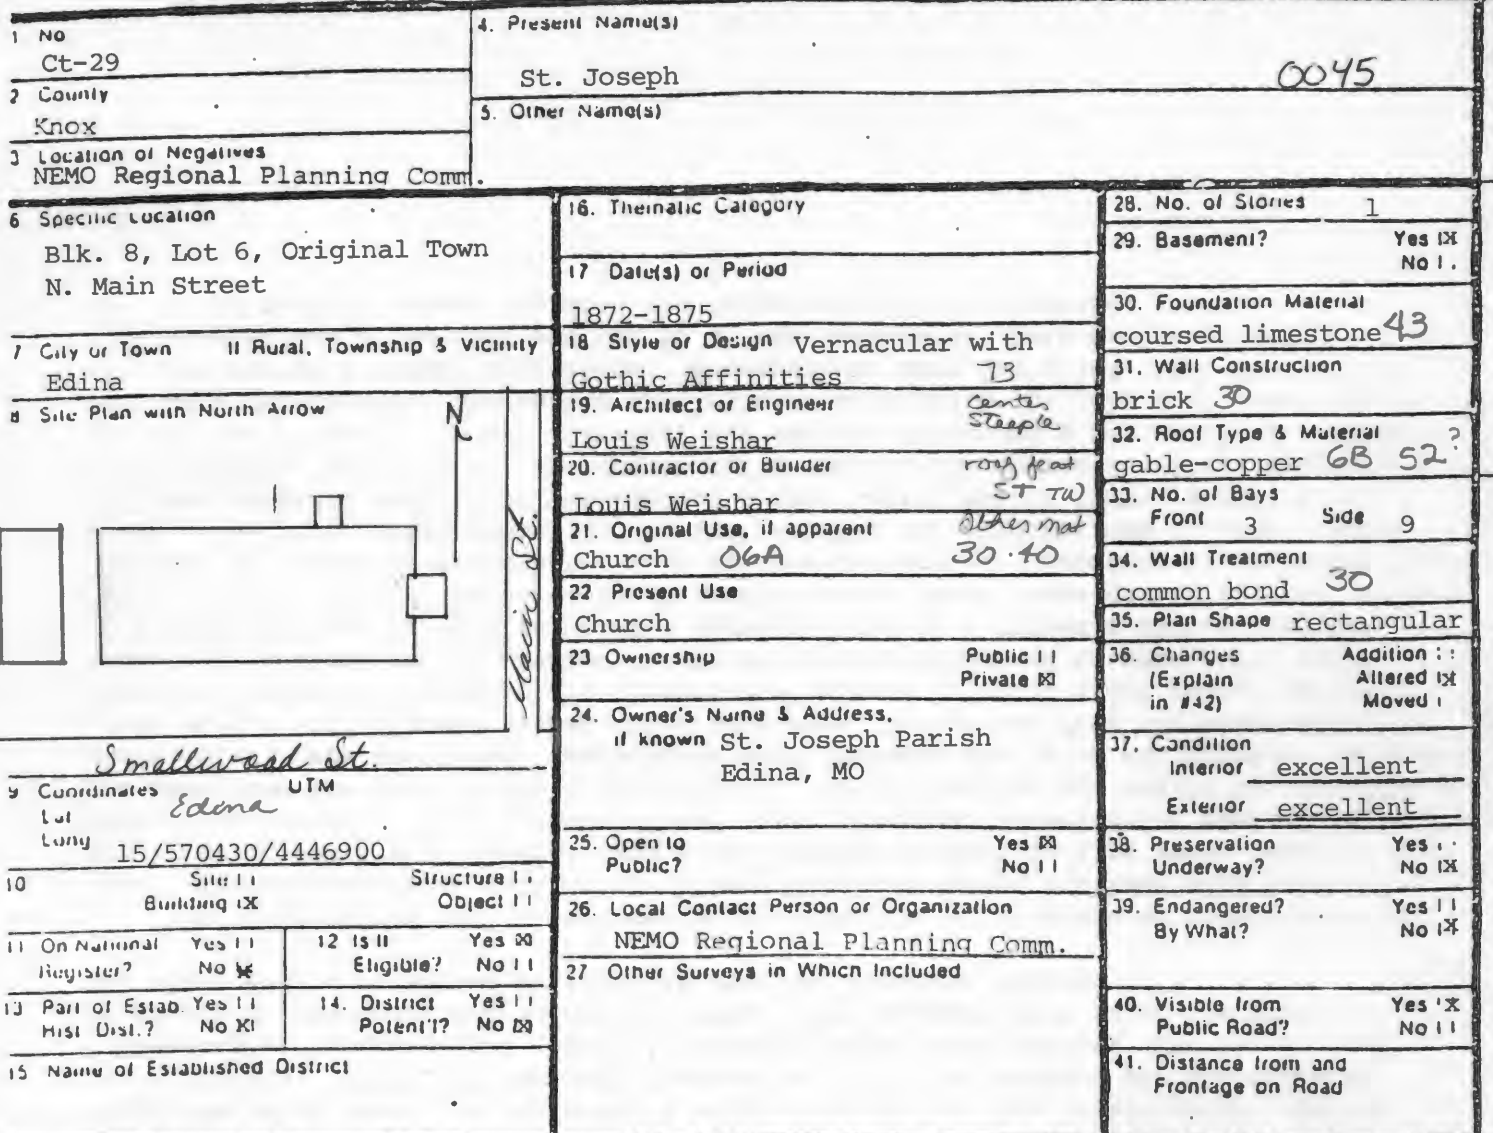 1 No
Ct-29
2 County
Knox
3 Location of Negatives
NEMO Regional Planning Comm.
4. Present Name(s)
St. Joseph
0045
5. Other Name(s)
6 Specific Location
Blk. 8, Lot 6, Original Town
N. Main Street
7 City or Town If Rural, Township & Vicinity
Edina
8 Site Plan with North Arrow
N
Main St.
Smallwood St.
9 Coordinates UTM
Edina
Lat
Long
15/570430/4446900
10 Site | | Structure | |
Building |X Object | |
11 On National Yes | |
Register? No |X|
12 Is It Yes |X|
Eligible? No | |
13 Part of Estab. Yes | |
Hist Dist.? No X|
14. District Yes | |
Potent'l? No |X|
15 Name of Established District
16. Thematic Category
17 Date(s) or Period
1872-1875
18 Style or Design Vernacular with
Gothic Affinities 73
19. Architect or Engineer center
steeple
Louis Weishar
20. Contractor or Builder roof feat
ST TW
Louis Weishar
21. Original Use, if apparent Other mat
Church 06A 30·40
22 Present Use
Church
23 Ownership Public | |
Private |X|
24. Owner's Name & Address,
if known St. Joseph Parish
Edina, MO
25. Open to Yes |X|
Public? No | |
26. Local Contact Person or Organization
NEMO Regional Planning Comm.
27 Other Surveys in Which Included
28. No. of Stories 1
29. Basement? Yes |X
No | .
30. Foundation Material
coursed limestone 43
31. Wall Construction
brick 30
32. Roof Type & Material ?
gable-copper 6B 52
33. No. of Bays
Front 3 Side 9
34. Wall Treatment
common bond 30
35. Plan Shape rectangular
36. Changes Addition | |
(Explain Altered |X
in #42) Moved |
37. Condition
Interior excellent
Exterior excellent
38. Preservation Yes
Underway? No |X
39. Endangered? Yes | |
By What? No |X
40. Visible from Yes |X
Public Road? No | |
41. Distance from and
Frontage on Road